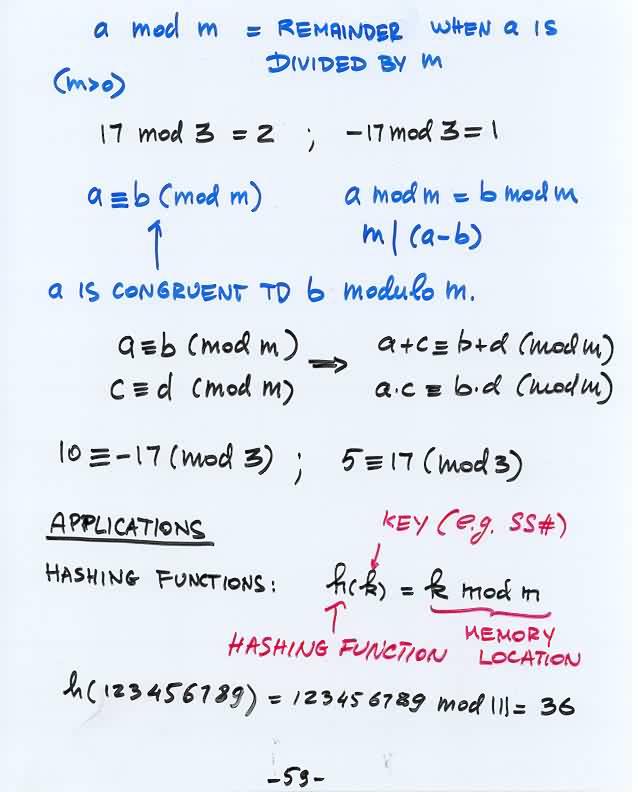 a mod m = REMAINDER WHEN a IS
DIVIDED BY m
(m>0)
17 mod 3 = 2 ; -17 mod 3 = 1
a ≡ b (mod m) a mod m = b mod m
m | (a-b)
a IS CONGRUENT TO b modulo m.
a ≡ b (mod m) ⟹ a+c ≡ b+d (mod m)
c ≡ d (mod m) a.c ≡ b.d (mod m)
10 ≡ -17 (mod 3) ; 5 ≡ 17 (mod 3)
APPLICATIONS
KEY (e.g. SS#)
HASHING FUNCTIONS: h(k) = k mod m
HASHING FUNCTION
MEMORY
LOCATION
h(123456789) = 123456789 mod 111 = 36
-59-